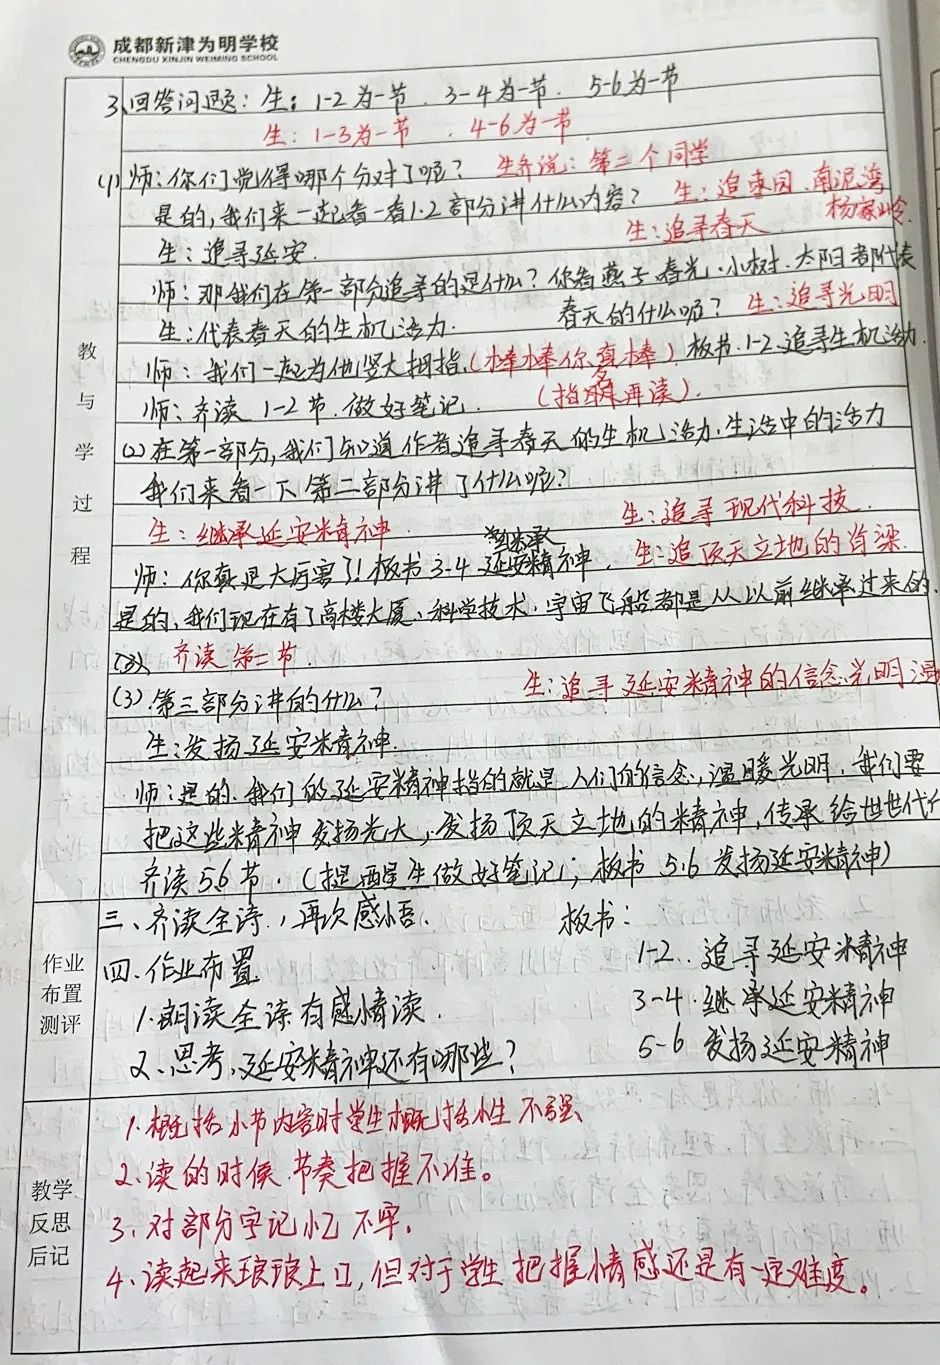 成都新津为明学校
CHENGDU XINJIN WEIMING SCHOOL
3、回答问题：生：1-2为一节．3-4为一节．5-6为一节
生：1-3为一节．4-6为一节
(1)师：你们觉得哪个分对了呢？ 生齐说：第二个同学
是的，我们来一起看一看1.2部分讲什么内容？ 生：追枣园、南泥湾
杨家岭
生：追寻延安． 生：追寻春天
师：那我们在第一部分追寻的是什么？你看燕子春光．小树．太阳都代表
春天的什么呢？ 生：追寻光明
生：代表春天的生机活力．
师：我们一起为他竖大拇指，(棒棒你真棒) 板书：1-2 追寻生机活力
师：齐读 1-2节．做好笔记． (指名再读)．
(2)在第一部分，我们知道作者追寻春天的生机活力，生活中的活力
我们来看一下第二部分讲了什么呢？
生：继承延安精神． 生：追寻现代科技．
师：你真是太厉害了！板书3-4 继承延安精神． 生：追顶天立地的脊梁
是的，我们现在有了高楼大厦、科学技术．宇宙飞船都是从以前继承过来的．
齐读第二节．
(3)．第三部分讲的什么？ 生：追寻延安精神的信念、光明、温
生：发扬延安精神．
师：是的．我们的延安精神指的就是人们的信念，温暖光明．我们要
把这些精神发扬光大，发扬顶天立地的精神，传承给世世代代
齐读56节．(提醒学生做好笔记；板书 5.6 发扬延安精神)
三、齐读全诗，再次感悟． 板书：
四、作业布置
1-2．追寻延安精神
1.朗读全诗有感情读． 3-4．继承延安精神
2.思考、延安精神还有哪些？ 5-6 发扬延安精神
教
与
学
过
程
作业
布置
测评
教学
反思
后记
1.概括小节内容时学生概括性不强
2.读的时候．节奏把握不准。
3.对部分字记忆不牢．
4.读起来琅琅上口，但对于学生把握情感还是有一定难度。